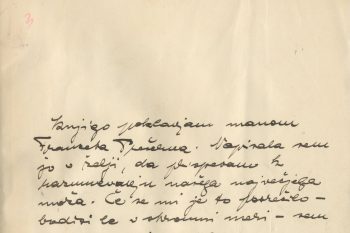 Knjigo poklanjam manom
Franceta Prešerna. Napisala sem
jo v želji, da prispevam k
razumevanju našega največjega
moža. Če se mi je to posrečilo -
bodisi le v skromni meri - sem